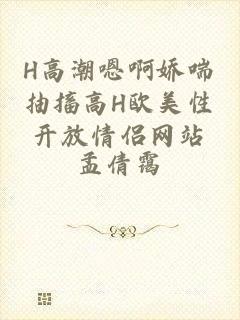 H高潮嗯啊娇喘
抽搐高H欧美性
开放情侣网站
孟倩霭